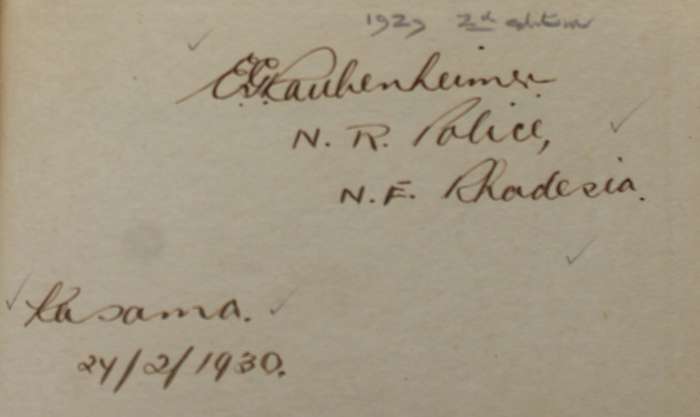 1929 2nd edition
E.G. Raubenheimer.
N. R. Police,
N. E. Rhodesia.
Kasama.
24/2/1930.